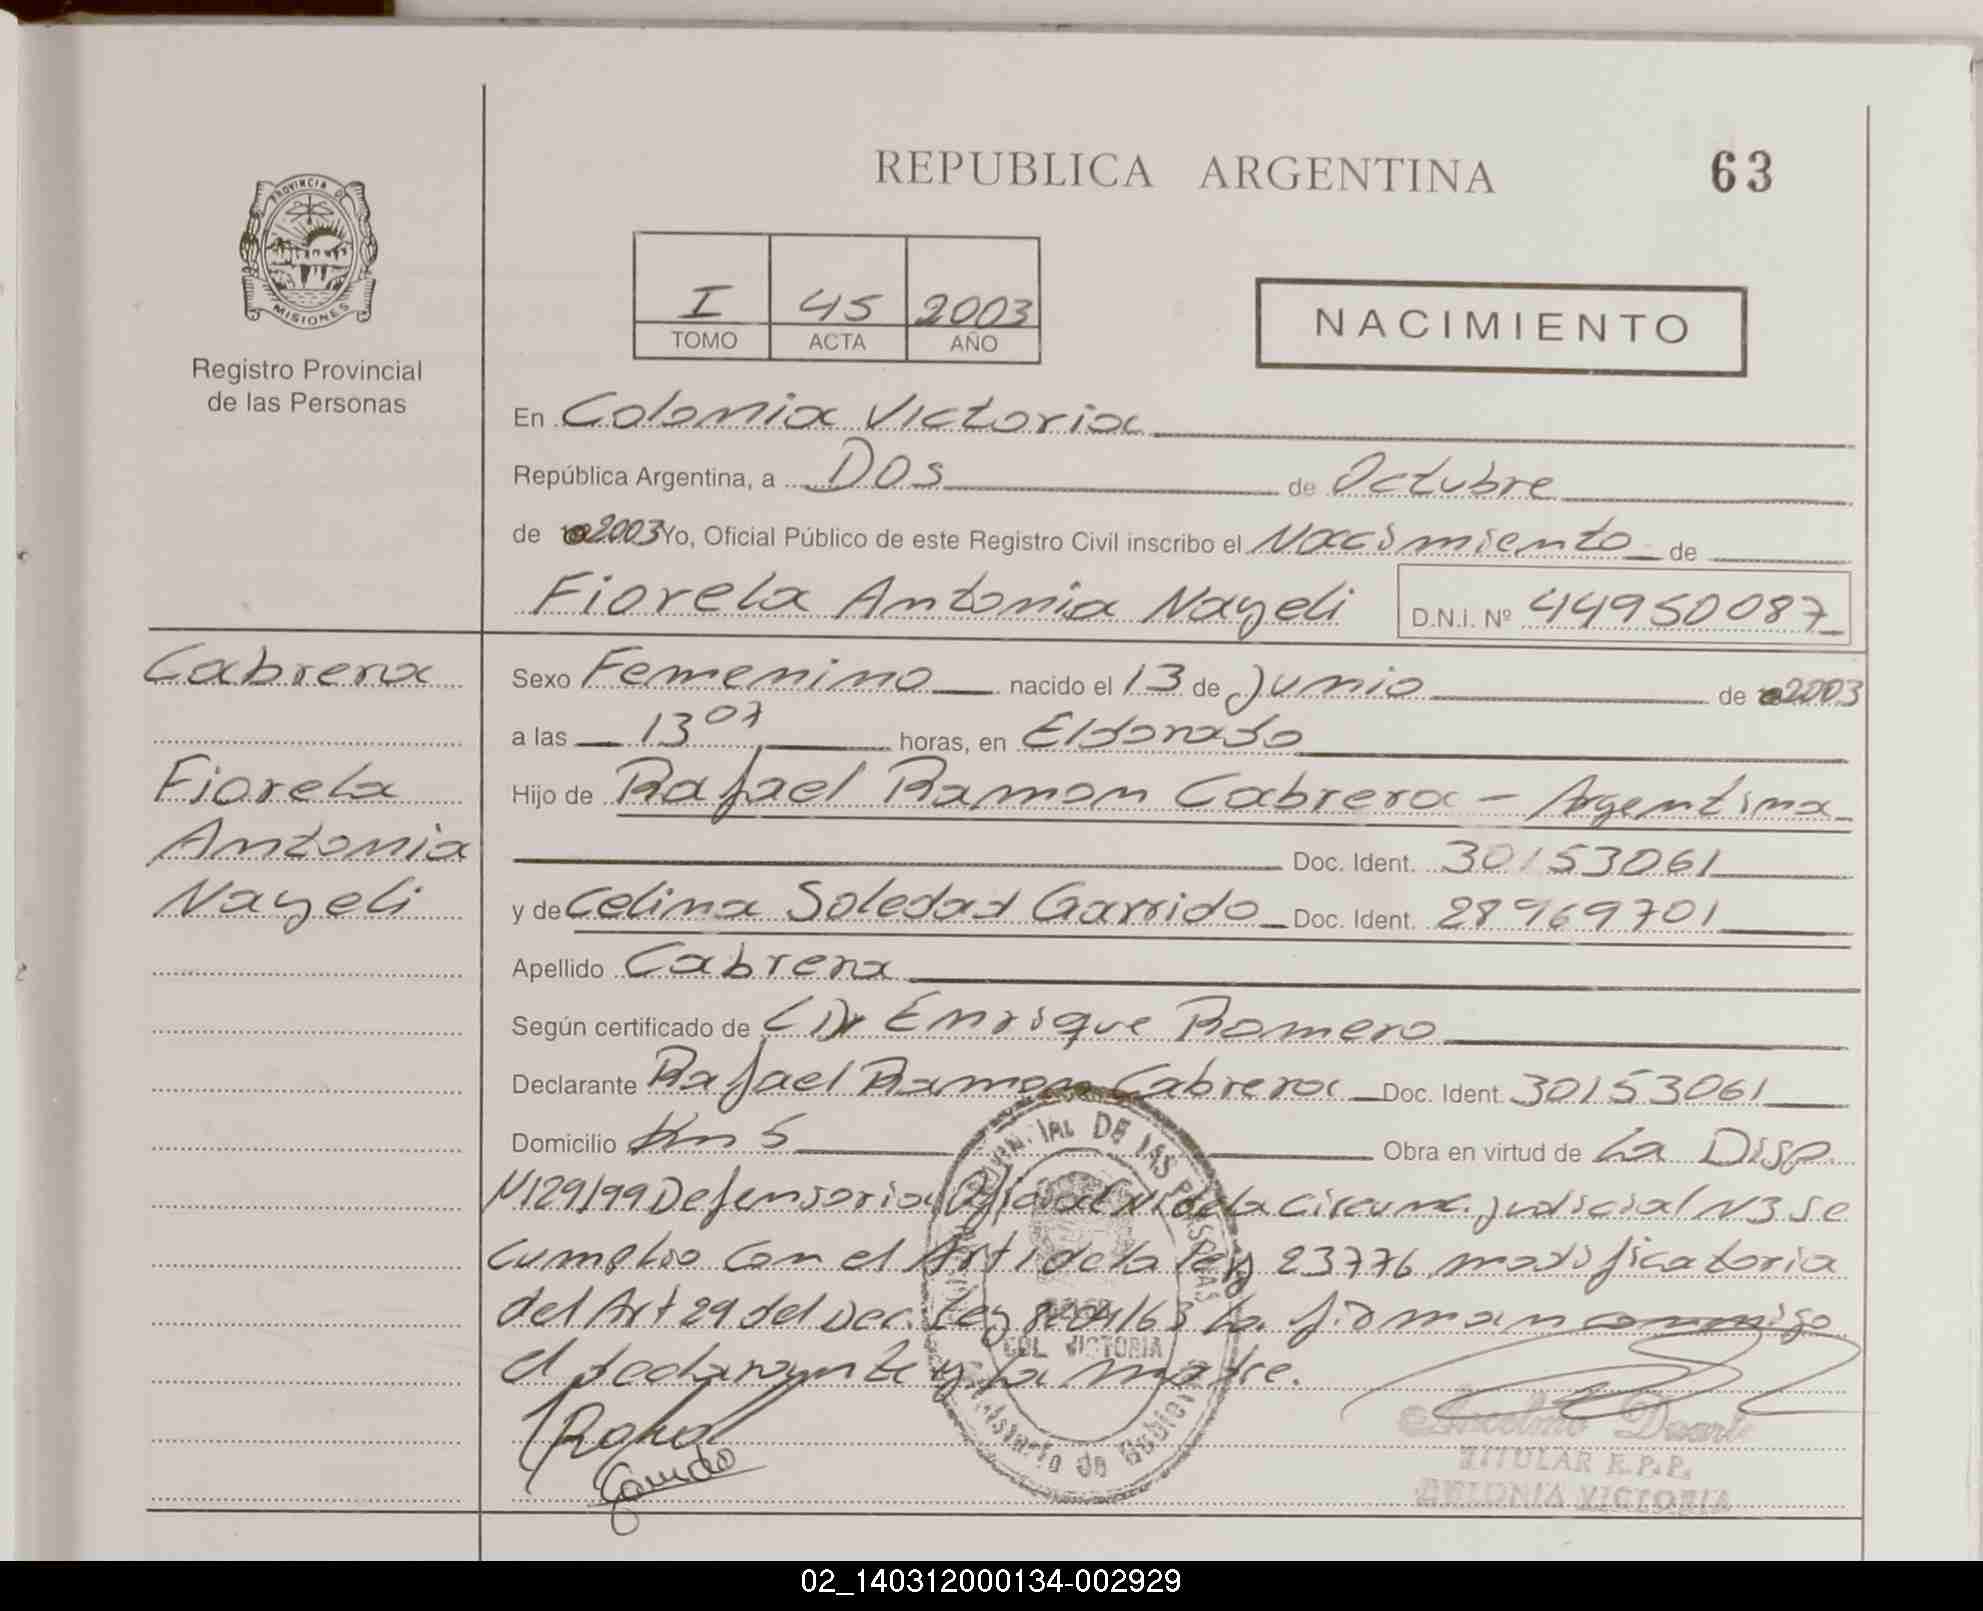 REPUBLICA ARGENTINA
63
PROVINCIA DE
MISIONES
Registro Provincial
de las Personas
I 45 2003
TOMO ACTA AÑO
NACIMIENTO
En Colonia Victoria
República Argentina, a Dos de Octubre
de 2003 Yo, Oficial Público de este Registro Civil inscribo el Nacimiento de
Fiorela Antonia Nayeli D.N.I. Nº 44950087
Cabrera
Fiorela
Antonia
Nayeli
Sexo Femenino nacido el 13 de Junio de 2003
a las 13 07 horas, en Eldorado
Hijo de Rafael Ramon Cabrera - Argentina
Doc. Ident. 30153061
y de Celina Soledad Garrido Doc. Ident. 28969701
Apellido Cabrera
Según certificado de Enrique Romero
Declarante Rafael Ramon Cabrera Doc. Ident. 30153061
Domicilio Km 5 Obra en virtud de La Disp.
N129/99 Defensoria Oficial N1 de la Circunc. Judicial N3 se
cumplio con el Art 1 de la Ley 23776 modificatoria
del Art 29 del Dec. Ley 8204/63 La firman conmigo
el declarante y La madre.
DE LAS PERSONAS
COL VICTORIA
Ministerio de Gobierno
Garrido
Anselmo Duarte
TITULAR R.P.P.
COLONIA VICTORIA
02_140312000134-002929